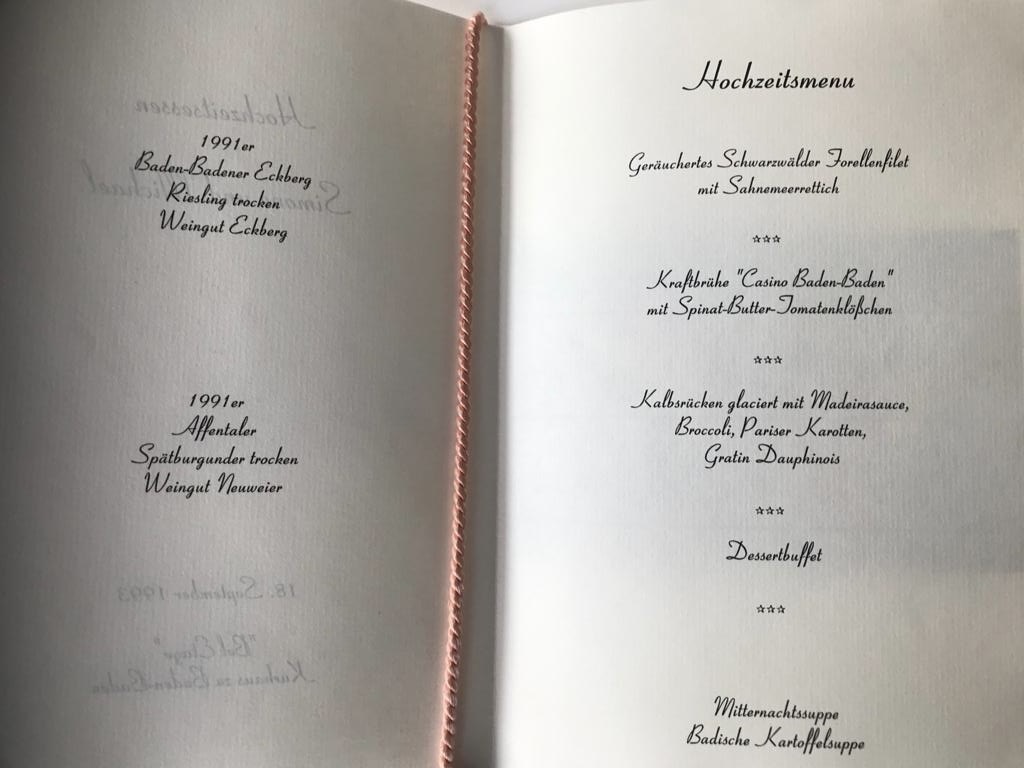 Hochzeitsessen
1991er
Baden-Badener Eckberg
Riesling trocken
Weingut Eckberg
1991er
Affentaler
Spätburgunder trocken
Weingut Neuweier
18. September 1993
"Bel Etage"
Kurhaus zu Baden-Baden
Hochzeitsmenu
Geräuchertes Schwarzwälder Forellenfilet
mit Sahnemeerrettich
☆☆☆
Kraftbrühe "Casino Baden-Baden"
mit Spinat-Butter-Tomatenklößchen
☆☆☆
Kalbsrücken glaciert mit Madeirasauce,
Broccoli, Pariser Karotten,
Gratin Dauphinois
☆☆☆
Dessertbuffet
☆☆☆
Mitternachtssuppe
Badische Kartoffelsuppe